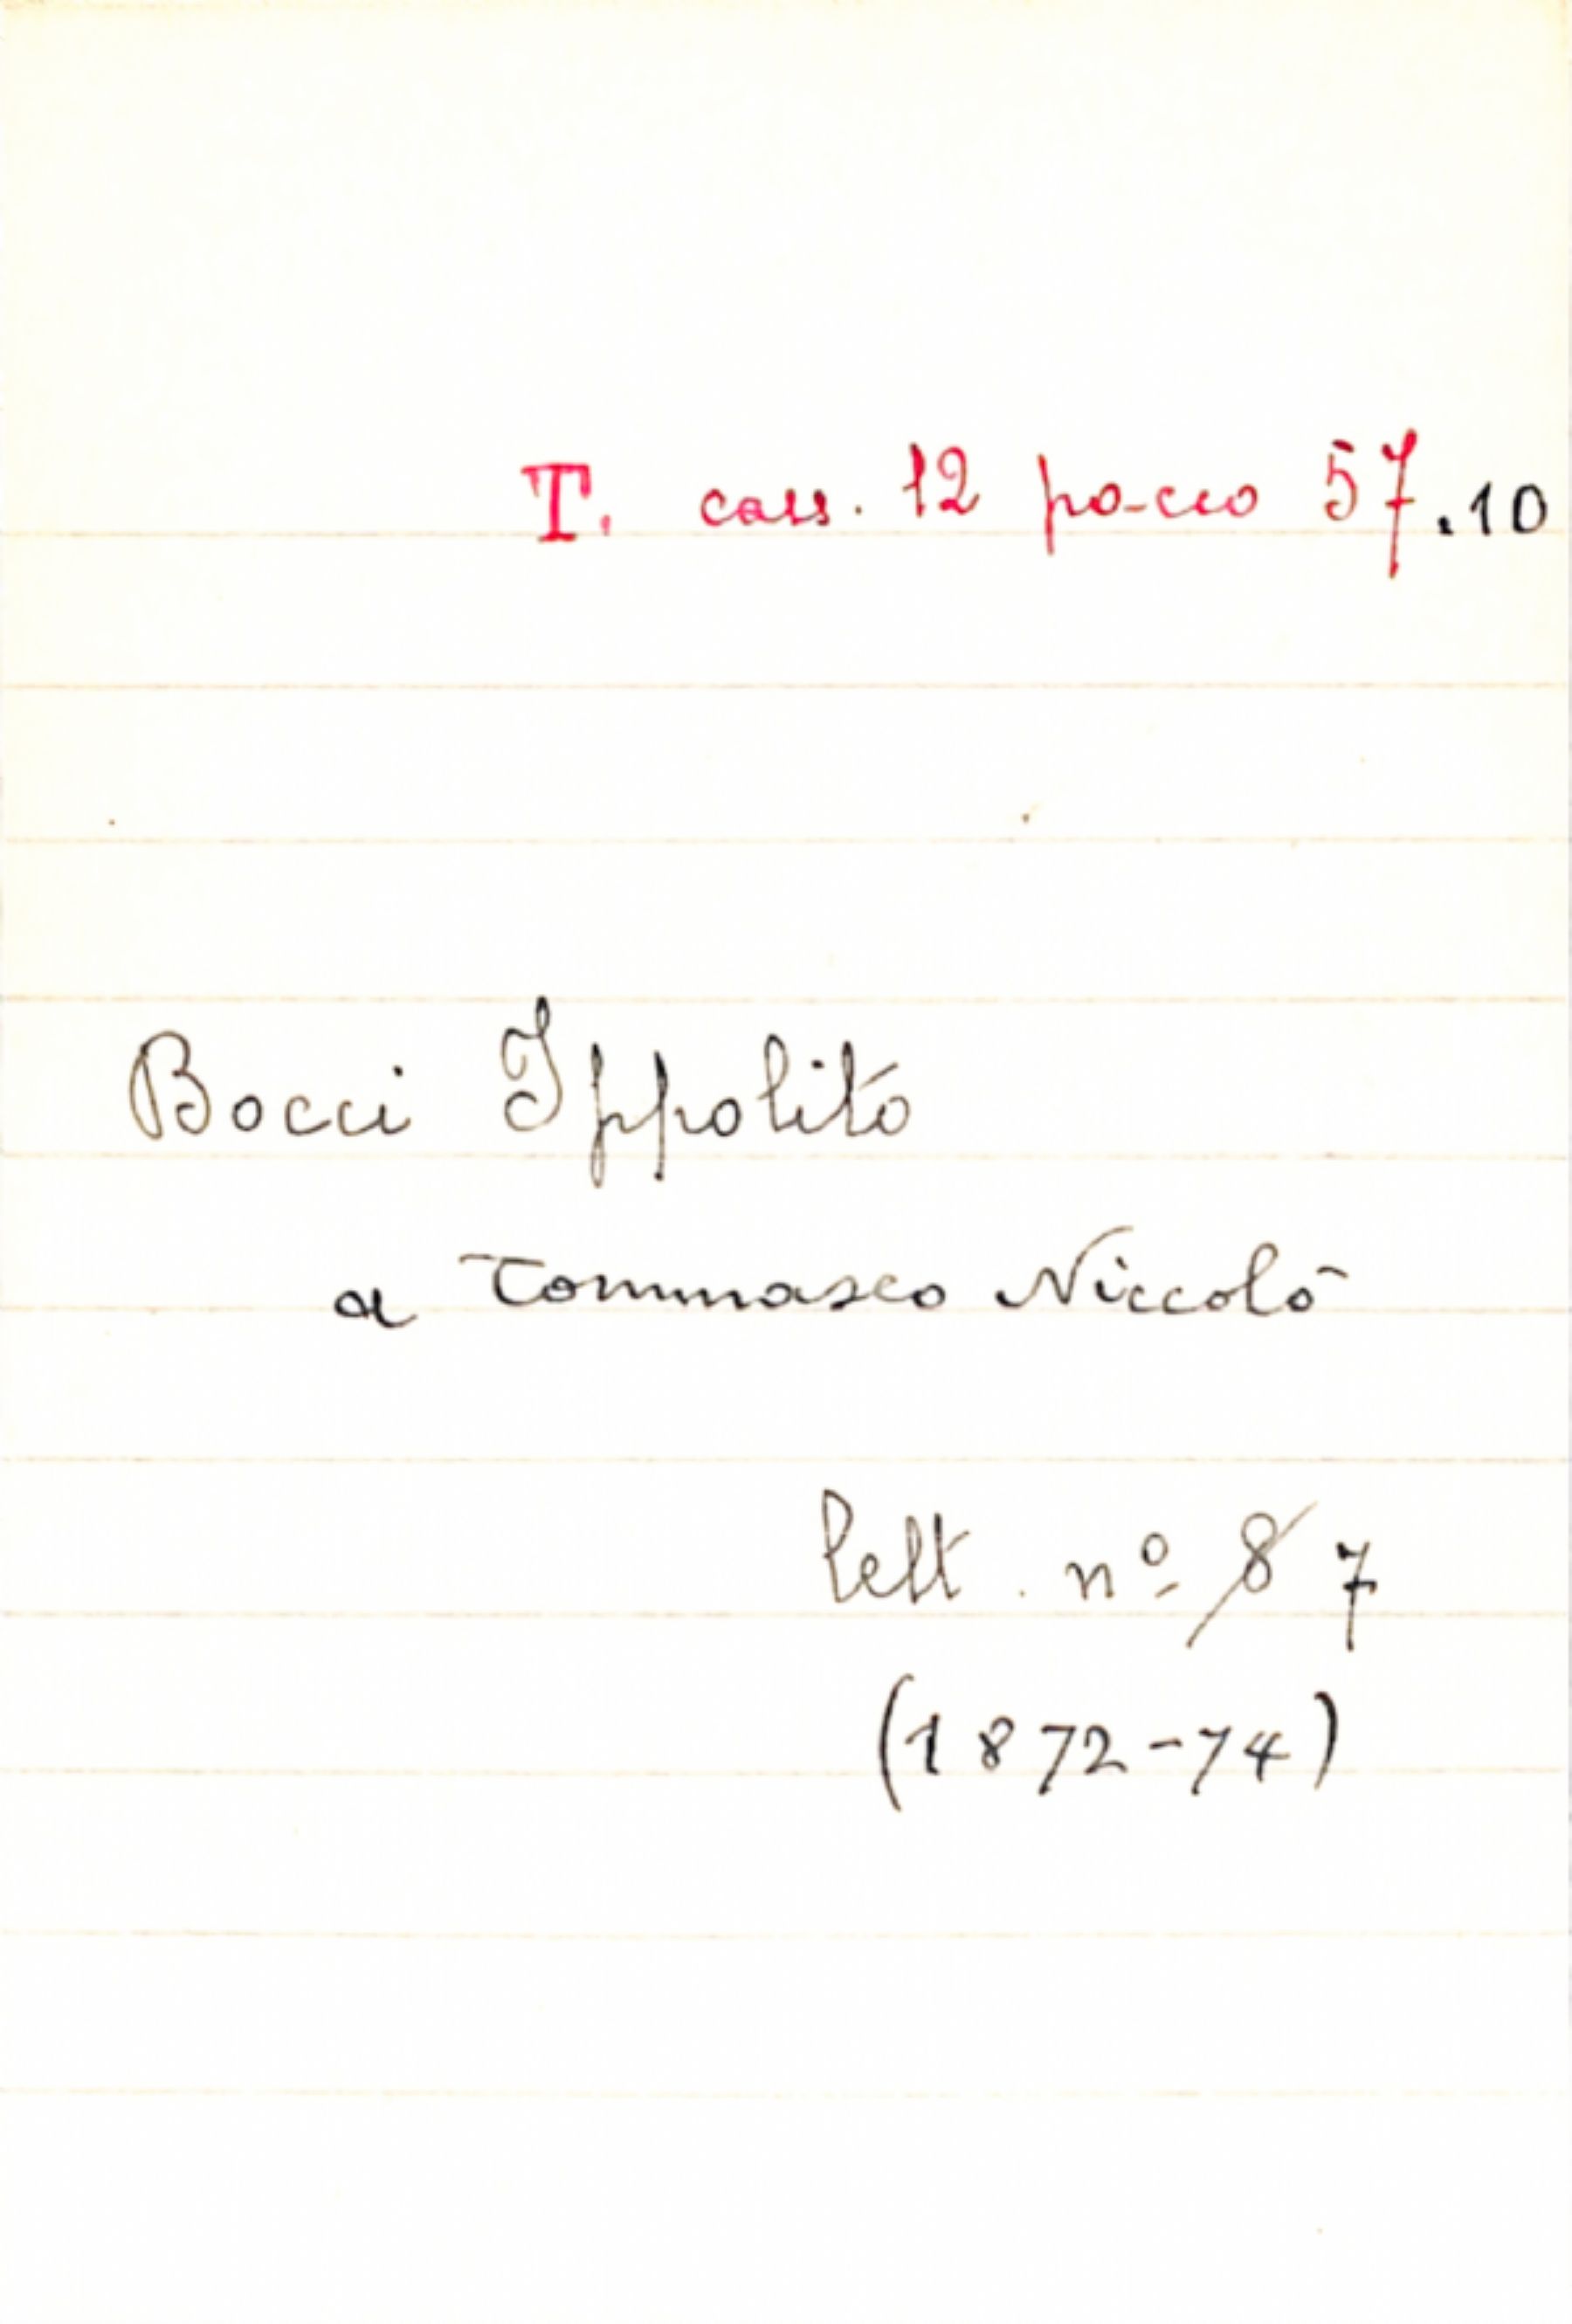 T. cass. 12 pa-cco 57.10
Bocci Ippolito
a Tommaseo Niccolò
lett. nº 8 7
(1872-74)